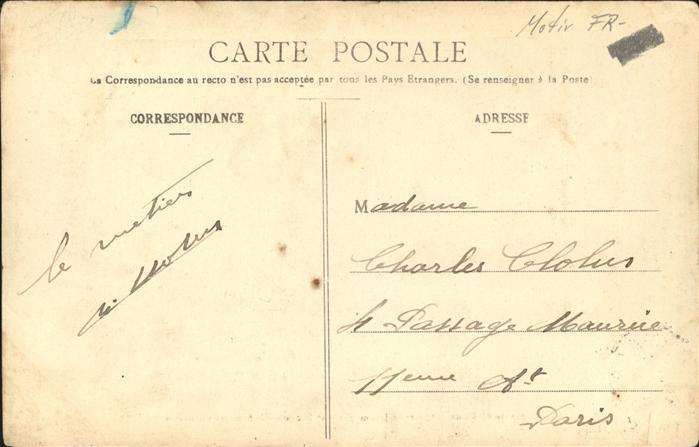 Motiv FR-
CARTE POSTALE
La Correspondance au recto n'est pas acceptée par tous les Pays Etrangers. (Se renseigner à la Poste)
CORRESPONDANCE
le metier
ADRESSE
Madame
Charles Clolus
4 Passage Maurice
11eme Art
Paris